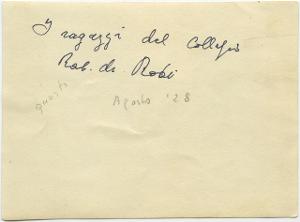 I ragazzi del Collegio
Rob. de Nobili
questo
Agosto '28